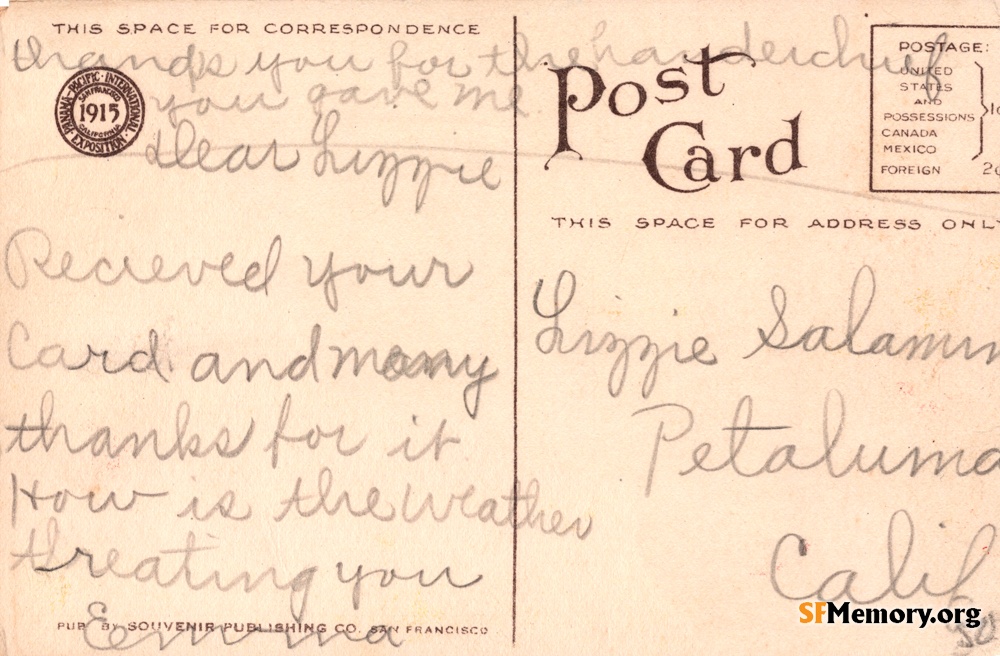 THIS SPACE FOR CORRESPONDENCE
thanks you for the handerchief
you gave me
PANAMA-PACIFIC-INTERNATIONAL EXPOSITION
SAN FRANCISCO
1915
CALIFORNIA
Dear Lizzie
Recieved your
Card and many
thanks for it
How is the weather
threating you
Emma
PUB BY SOUVENIR PUBLISHING CO. SAN FRANCISCO
Post
Card
POSTAGE:
UNITED
STATES
AND
POSSESSIONS
CANADA
MEXICO
FOREIGN 2¢
THIS SPACE FOR ADDRESS ONLY
Lizzie Salamin
Petaluma
Calif
SFMemory.org